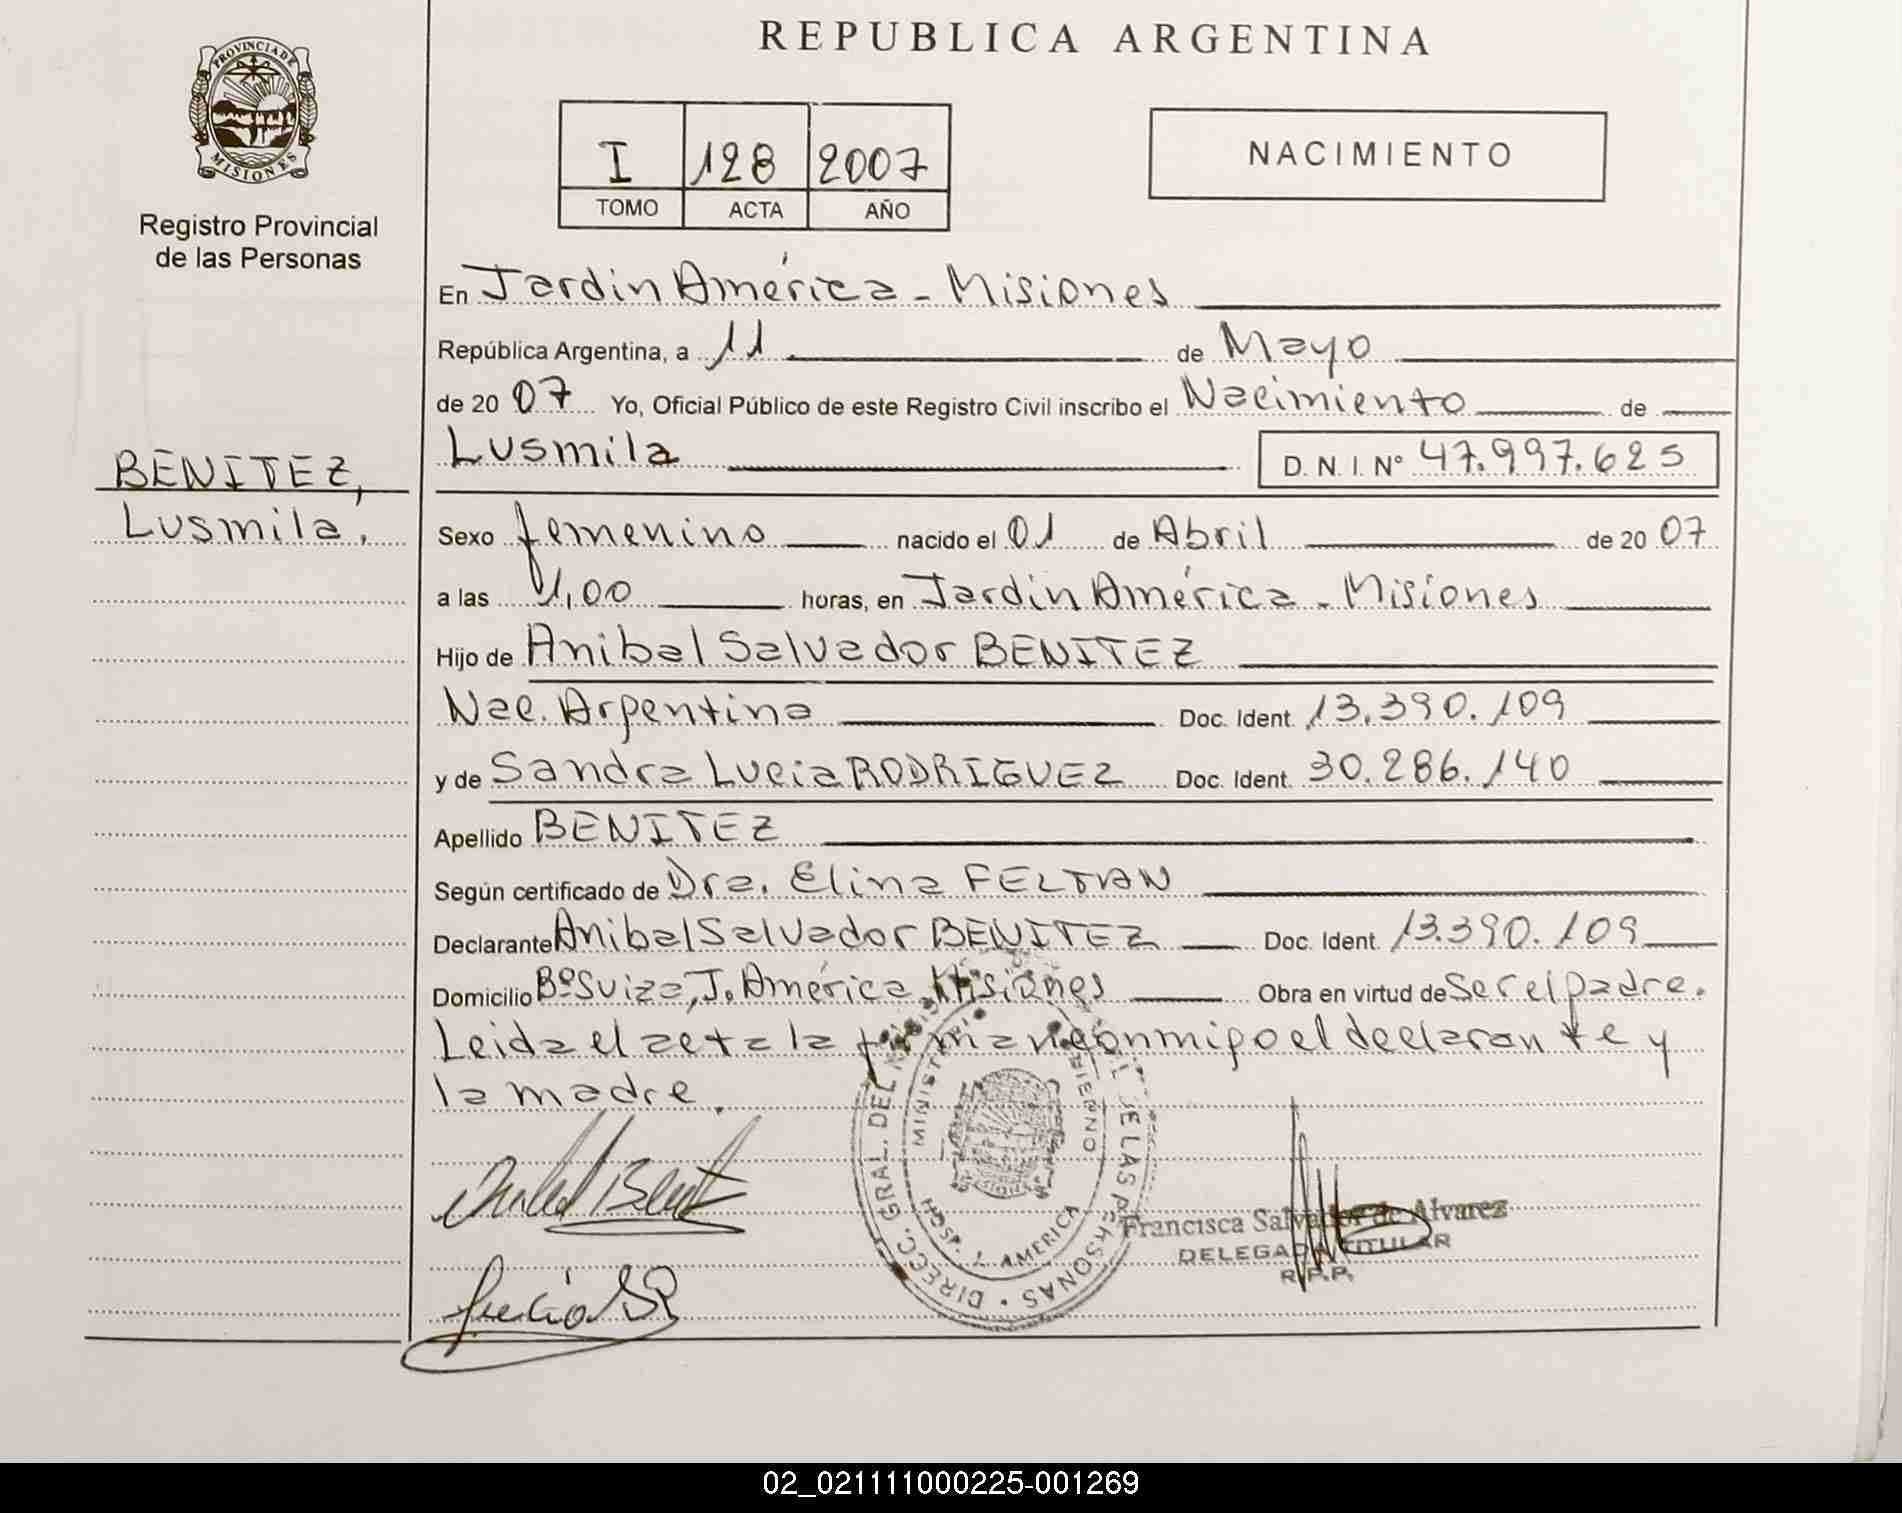 REPUBLICA ARGENTINA
PROVINCIA DE
MISIONES
Registro Provincial
de las Personas
I 128 2007
TOMO ACTA AÑO
NACIMIENTO
En Jardin América - Misiones
República Argentina, a 11 de Mayo
de 20 07 Yo, Oficial Público de este Registro Civil inscribo el Nacimiento de
Lusmila D. N. I. Nº 47.997.625
BENITEZ,
Lusmila.
Sexo femenino nacido el 01 de Abril de 20 07
a las 1,00 horas, en Jardin América - Misiones
Hijo de Anibal Salvador BENITEZ
Nac. Argentina Doc. Ident. 13.390.109
y de Sandra Lucia RODRIGUEZ Doc. Ident. 30.286.140
Apellido BENITEZ
Según certificado de Dra. Elina FELTAN
Declarante Anibal Salvador BENITEZ Doc. Ident. 13.390.109
Domicilio Bº Suiza, J. América, Misiones Obra en virtud de Ser el padre.
Leida el acta la firman conmigo el declarante y
la madre.
DIRECC. GRAL. DEL DE LAS PERSONAS
HOSP. J. AMERICA
Francisca Salvador de Alvarez
DELEGADA TITULAR
R.P.P.
02_021111000225-001269